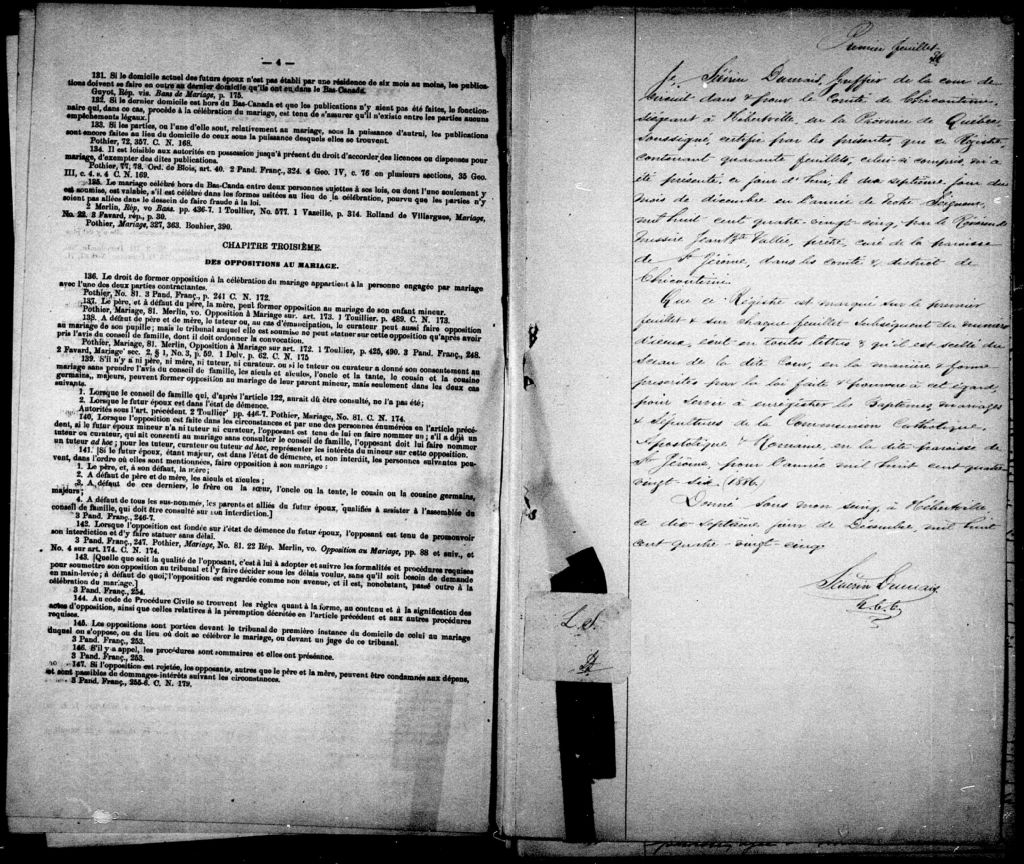 — 4 —
131. Si le domicile actuel des futurs époux n'est pas établi par une résidence de six mois au moins, les publica-
tions doivent se faire en outre au dernier domicile qu'ils ont eu dans le Bas-Canada.
Guyot, Rép. vis. Bans de Mariage, p. 175.
132. Si le dernier domicile est hors du Bas-Canada et que les publications n'y aient pas été faites, le fonction-
naire qui, dans ce cas, procède à la célébration du mariage, est tenu de s'assurer qu'il n'existe entre les parties aucuns
empêchements légaux.]
133. Si les parties, ou l'une d'elles, sont, relativement au mariage, sous la puissance d'autrui, les publications
sont encore faites au lieu du domicile de ceux sous la puissance desquels elles se trouvent.
Pothier, 72, 357. C. N. 168.
134. Il est loisible aux autorités en possession jusqu'à présent du droit d'accorder des licences ou dispenses pour
mariage, d'exempter des dites publications.
Pothier, 77, 78. Ord. de Blois, art. 40. 2 Pand. Franç., 324. 4 Geo. IV, c. 76 en plusieurs sections, 35 Geo.
III, c. 4. s. 4 C. N. 169.
135. Le mariage célébré hors du Bas-Canda entre deux personnes sujettes à ses lois, ou dont l'une seulement y
est soumise, est valable, s'il est célébré dans les formes usitées au lieu de la célébration, pourvu que les parties n'y
soient pas allées dans le dessein de faire fraude à la loi.
2 Merlin, Rép, vo Bans. pp. 436-7. 1 Toullier, No. 577. 1 Vazeille, p. 314. Rolland de Villargues, Mariage,
No. 22. 3 Favard, rép., p. 30.
Pothier, Mariage, 327, 363. Bouhier, 390.
CHAPITRE TROISIÈME.
DES OPPOSITIONS AU MARIAGE.
136. Le droit de former opposition à la célébration du mariage appartient à la personne engagée par mariage
avec l'une des deux parties contractantes.
Pothier, No. 81. 3 Pand. Franç., p. 241 C. N. 172.
137. Le père, et à défaut du père, la mère, peut former opposition au mariage de son enfant mineur.
Pothier, Mariage, 81. Merlin, vo. Opposition à Mariage sur. art. 173. 1 Touillier, p. 489. C. N. 173.
138. A défaut de père et de mère, le tuteur ou, au cas d'émancipation, le curateur peut aussi faire opposition
au mariage de son pupille; mais le tribunal auquel elle est soumise ne peut statuer sur cette opposition qu'après avoir
pris l'avis du conseil de famille, dont il doit ordonner la convocation.
Pothier, Mariage, 81. Merlin, Opposition à Mariage sur art. 172. 1 Toullier, p. 425, 490. 3 Pand. Franç., 248.
2 Favard, Mariage' sec. 2. § 1, No. 3, p. 59. 1 Delv. p. 62. C. N. 175
139. S'il n'y a ni père, ni mère, ni tuteur, ni curateur, ou si le tuteur ou curateur a donné son consentement au
mariage sans prendre l'avis du conseil de famille, les aïeuls et aïeules, l'oncle et la tante, le cousin et la cousine
germains, majeurs, peuvent former opposition au mariage de leur parent mineur, mais seulement dans les deux cas
suivants.
1. Lorsque le conseil de famille qui, d'après l'article 122, aurait dû être consulté, ne l'a pas été;
2. Lorsque le futur époux est dans l'état de démence.
Autorités sous l'art. précédent. 2 Toullier' pp. 446-7. Pothier, Mariage, No. 81. C. N. 174.
140. Lorsque l'opposition est faite dans les circonstances et par une des personnes énumérées en l'article précé-
dent, si le futur époux mineur n'a ni tuteur ni curateur, l'opposant est tenu de lui en faire nommer un; s'il a déjà un
tuteur ou curateur, qui ait consenti au mariage sans consulter le conseil de famille, l'opposant doit lui faire nommer
un tuteur ad hoc; pour les tuteur, curateur ou tuteur ad hoc, représenter les intérêts du mineur sur cette opposition.
141. [Si le futur époux, étant majeur, est dans l'état de démence, et non interdit, les personnes suivantes peu-
vent, dans l'ordre où elles sont mentionnées, faire opposition à son mariage:
1. Le père, et, à son défaut, la mère;
2. A défaut de père et de mère, les aïeuls et aïeules;
3. A défaut de ces derniers, le frère ou la sœur, l'oncle ou la tante, le cousin ou la cousine germains,
majeurs;
4. A défaut de tous les sus-nommés, les parents et alliés du futur époux, qualifiés à assister à l'assemblée du
conseil de famille, qui doit être consulté sur son interdiction.]
3 Pand. Franç., 246-7.
142. Lorsque l'opposition est fondée sur l'état de démence du futur époux, l'opposant est tenu de promouvoir
son interdiction et d'y faire statuer sans délai.
3 Pand. Franç., 247. Pothier, Mariage, No. 81. 22 Rép. Merlin, vo. Opposition au Mariage, pp. 88 et suiv., et
No. 4 sur art. 174. C. N. 174.
143. [Quelle que soit la qualité de l'opposant, c'est à lui à adopter et suivre les formalités et procédures requises
pour soumettre son opposition au tribunal et l'y faire décider sous les délais voulus, sans qu'il soit besoin de demande
en main-levée; à défaut de quoi, l'opposition est regardée comme non avenue, et il est, nonobstant, passé outre à la
célébration du mariage.]
3 Pand. Franç., 254.
144. Au code de Procédure Civile se trouvent les règles quant à la forme, au contenu et à la signification des
actes d'opposition, ainsi que celles relatives à la péremption décrétée en l'article précédent et aux autres procédures
requises.
145. Les oppositions sont portées devant le tribunal de première instance du domicile de celui au mariage
duquel on s'oppose, ou du lieu où doit se célébrer le mariage, ou devant un juge de ce tribunal.
3 Pand. Franç., 253.
146. S'il y a appel, les procédures sont sommaires et elles ont préséance.
3 Pand. Franç., 253.
147. Si l'opposition est rejetée, les opposants, autres que le père et la mère, peuvent être condamnés aux dépens,
et sont passibles de dommages-intérêts suivant les circonstances.
3 Pand. Franç., 255-6. C. N. 179.
L. S.
Premier feuillet
Je, Sévérin Dumais, Greffier de la cour de
Circuit dans & pour le Comté de Chicoutimi,
Siégeant à Hébertville, en la Province de Québec,
Soussigné, certifie par les présentes, que ce Régistre
contenant quarante feuillets, celui-ci compris, m'a
été présenté, ce jour d'hui, le dix septième jour du
mois de décembre en l'année de Notre Seigneur,
mil huit cent quatre-vingt-cinq, par le Révérend
Messire Jean Bte Vallée, prêtre, curé de la paroisse
de St Jérôme, dans les comté & district de
Chicoutimi.
Que ce Régistre est marqué sur le premier
feuillet & sur chaque feuillet subséquent du numéro
d'iceux, écrit en toutes lettres & qu'il est scellé du
Sceau de la dite Cour, en la manière & forme
prescrites par la loi faite & pourvue à cet égard,
pour servir à enregistrer les Baptêmes, mariages
& Sépultures de la Communion Catholique,
Apostolique & Romaine, en la dite paroisse de
St Jérôme, pour l'année mil huit cent quatre
vingt six. (1886)
Donné sous mon seing, à Hébertville,
ce dix septième jour de Décembre, mil huit
cent quatre-vingt-cinq.
Sévérin Dumais
G.C.C.